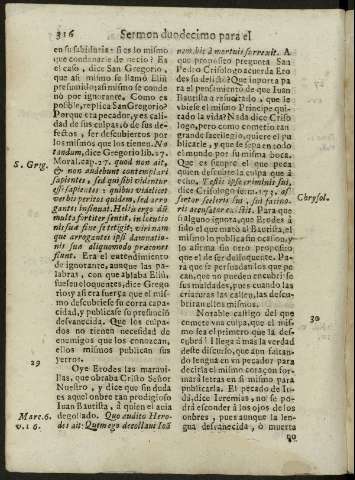 316 Sermon duodecimo para el
en su sabiduria: si es lo mismo
que condenarle de necio? Es
el caso, dice San Gregorio,
que assi mismo se llamó Eliù
presumido; assi mismo se conde
nò por ignorante. Como es
posible, replica San Gregorio?
Porque era pecador, y es cali
dad de sus culpas, ò de sus de-
fectos, ser descubiertos por
los mismos que los tienen. No
tandum, dice Gregorio lib. 27.
S. Greg. Moral. cap. 27. quod non ait,
& non audebunt contemplari
sapientes, sed qui sibi videntur
esse sapientes: quibus videlicet
verbis peritos quidem, sed arro
gantes insinuat. Heliu ergo dũ
multos fortiter ferit, in locutio
nis suæ fine se tetigit: viri nam
que arrogantes ipsi damnatio-
nis suæ aliquando præcones
fiunt. Era el entendimiento
de ignorante, aunque las pa-
labras, con que alababa Eliù,
fuessen eloquentes, dice Grego
rio: y assi era fuerça que el mis-
mo descubriesse su corta capa-
cidad, y publicasse su presunciò
desvanecida. Que los culpa-
dos no tienen necesidad de
enemigos que los conozcan,
ellos mismos publican sus
yerros.
29 Oye Erodes las maravi-
llas, que obraba Cristo Señor
Nuestro, y dice que sin duda
es aquel onbre tan prodigioso
Iuan Bautista, à quien el avia
Marc. 6. degollado. Quo audito Hero-
v. 16. des ait: Quem ego decollavi Ioã
nem, hic à mortuis surrexit. A
que proposito pregunta San
Pedro Crisologo acuerda Ero
des su delicto? Que inporta pa
ra el pensamiento de que Iuan
Bautista à resucitado, que le
vviesse el mismo Principe qui-
tado la vida? Nada dice Criso
logo, pero como cometio tan
grande sacrilegio, quiere el pu
blicarle, y que se sepan en to-
do el mundo por su misma boca.
Que es sienpre el que peca
quien descubre la culpa que à
echo. Testis ipse criminis sui,
dice Crisologo serm. 173. as-
Chrysol. sertor sceleris sui, sui facino-
ris accusator exsistit. Para que
si alguno ignora, que Erodes à
sido el que matò al Bautista, el
mismo lo publica sin ocasion, y
lo afirma sin otro proposito,
que el de ser delinquente. Pa-
ra que se persuadan los que pe-
can, que no pueden encubrir se
sus maldades, pues cuando las
criaturas las callen, las descu-
briran ellos mismos.
30 Notable castigo del que
comete vna culpa, que el mis-
mo sea el primero que la des-
cubra! Llega à mas la verdad
deste discurso, que aun faltan-
do lengua en vn pecador para
decirla el mismo coraçon for-
marà letras en si mismo para
publicarla. El pecado de Iu-
dà, dice Ieremias, no se po-
drà esconder à los ojos de los
onbres, pues aunque la len-
gua sea desvanecida, ò muerta
no